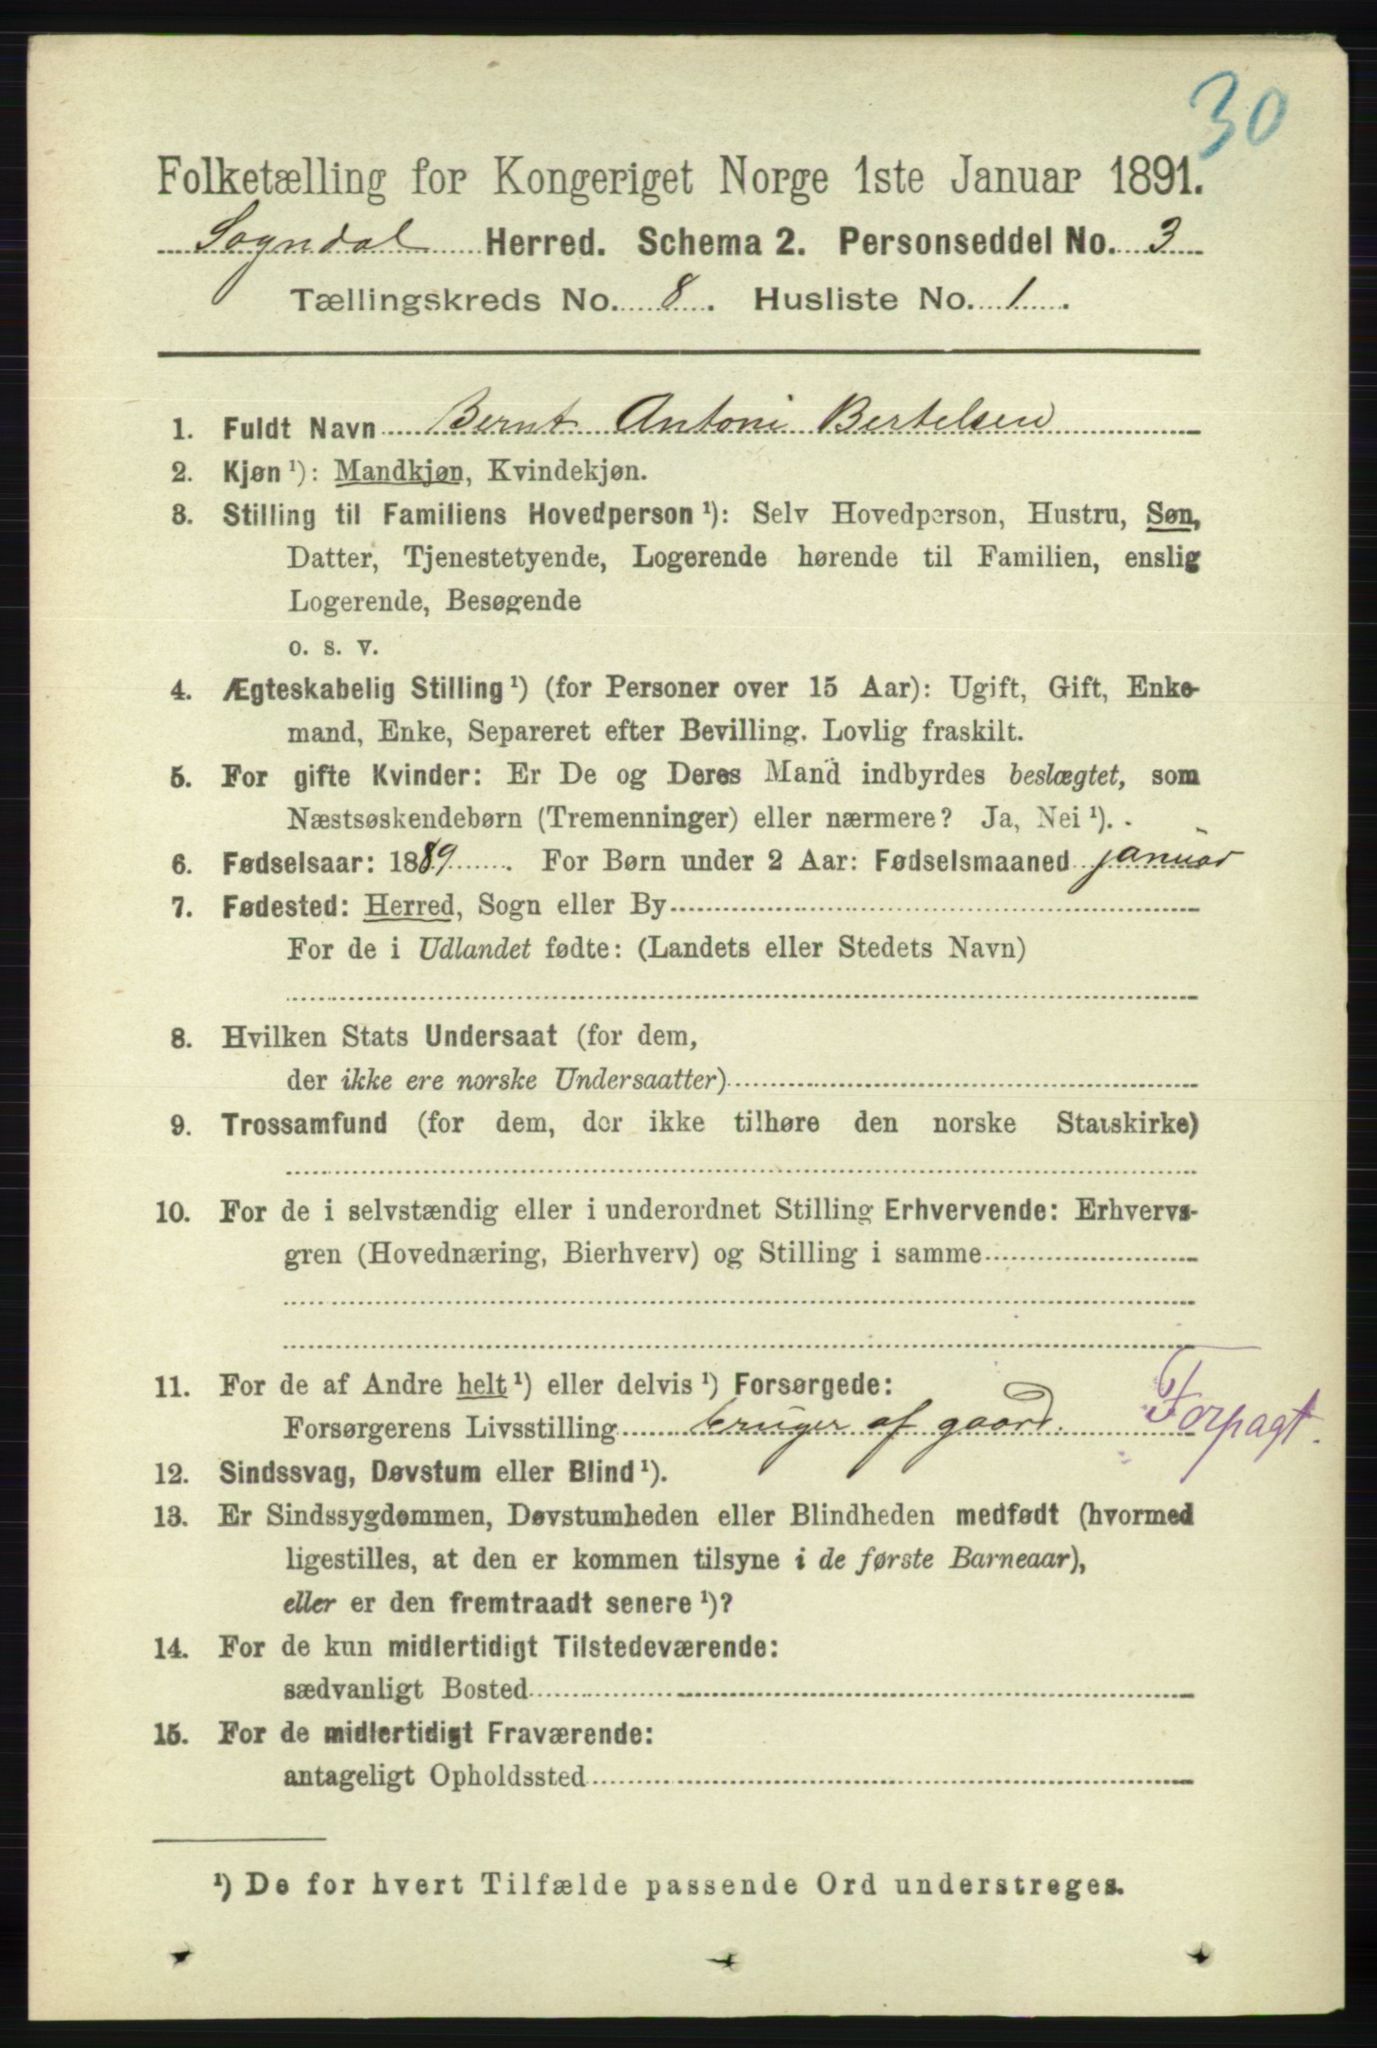 30
Folketælling for Kongeriget Norge 1ste Januar 1891.
Sogndal Herred. Schema 2. Personseddel No. 3
Tællingskreds No. 8. Husliste No. 1.
1. Fuldt Navn Bernt Antoni Bertelsen
2. Kjøn ¹): Mandkjøn, Kvindekjøn.
3. Stilling til Familiens Hovedperson ¹): Selv Hovedperson, Hustru, Søn,
Datter, Tjenestetyende, Logerende hørende til Familien, enslig
Logerende, Besøgende
o. s. v.
4. Ægteskabelig Stilling ¹) (for Personer over 15 Aar): Ugift, Gift, Enke-
mand, Enke, Separeret efter Bevilling. Lovlig fraskilt.
5. For gifte Kvinder: Er De og Deres Mand indbyrdes beslægtet, som
Næstsøskendebørn (Tremenninger) eller nærmere? Ja, Nei ¹).
6. Fødselsaar: 1889. For Børn under 2 Aar: Fødselsmaaned januar
7. Fødested: Herred, Sogn eller By
For de i Udlandet fødte: (Landets eller Stedets Navn)
8. Hvilken Stats Undersaat (for dem,
der ikke ere norske Undersaatter)
9. Trossamfund (for dem, der ikke tilhøre den norske Statskirke)
10. For de i selvstændig eller i underordnet Stilling Erhvervende: Erhvervs-
gren (Hovednæring, Bierhverv) og Stilling i samme
11. For de af Andre helt ¹) eller delvis ¹) Forsørgede:
Forsørgerens Livsstilling bruger af gaard. Forpagt.
12. Sindssvag, Døvstum eller Blind ¹).
13. Er Sindssygdommen, Døvstumheden eller Blindheden medfødt (hvormed
ligestilles, at den er kommen tilsyne i de første Barneaar),
eller er den fremtraadt senere ¹)?
14. For de kun midlertidigt Tilstedeværende:
sædvanligt Bosted
15. For de midlertidigt Fraværende:
antageligt Opholdssted
¹) De for hvert Tilfælde passende Ord understreges.